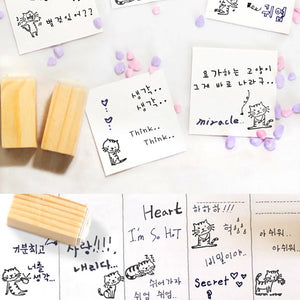 벌건싫어??
쉬엄
생각..
생각..
Think..
Think..
요가하는 고양이
그게 바로 나라구..
miracle...
기분최고
너를
생각..
사랑!!!
내리다..
Heart
I'm So HOT
쉬어가자
쉬엄 쉬엄
하하하!!!
헉!!
비밀이야..
Secret
아쉬워..
아쉬워..